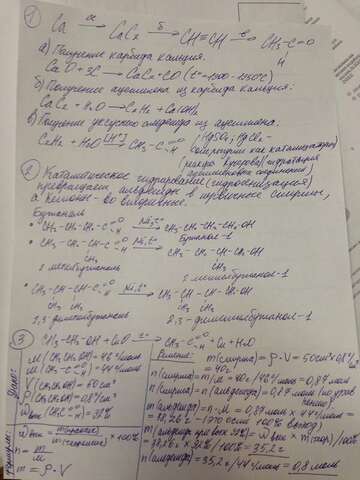 ① Ca —а→ CaC₂ —б→ CH≡CH —в→ CH₃-C=O
H
а) Получение карбида кальция.
CaO + 3C → CaC₂ + CO (t°=1900-1950°C)
б) Получение ацетилена из карбида кальция:
CaC₂ + H₂O → C₂H₂ + Ca(OH)₂
в) Получение уксусного альдегида из ацетилена.
C₂H₂ + H₂O —[H⁺]→ CH₃-C=O H (HgSO₄, HgCl₂ -
соединения как катализаторы)
(реакция Кучерова) (гидратация
ацетиленовых соединений)
② Каталитическое гидрирование (гидрогенизация)
превращает альдегиды в первичные спирты,
а кетоны - во вторичные.
Бутаналь
• CH₃-CH₂-CH₂-C=O H —Ni,t°→ CH₃-CH₂-CH₂-OH
Бутанол-1
• CH₃-CH-CH-C=O H —Ni,t°→ CH₃-CH-CH₂-OH
CH₃ CH₃
2 метилбутаналь 2 метилбутанол-1
• CH₃-CH-CH-C=O H —Ni,t°→ CH₃-CH-CH-CH₂-OH
CH₃ CH₃ CH₃ CH₃
2,3-диметилбутаналь 2,3-диметилбутанол-1
③ CH₃-CH₂-OH + CuO —t°→ CH₃-C=O H + Cu + H₂O
Дано:
M(CH₃CH₂OH) = 46 г/моль
M(CH₃-C=O H) = 44 г/моль
V(CH₃CH₂OH) = 50 см³
ρ(CH₃CH₂OH) = 0,8 г/см³
ŵвых(CH₃C=O H) = 92%
Формулы:
ŵвых = m(практ)/m(теорет) × 100%
n = m/M
m = ρ · V
Решение: m(спирта) = ρ · V = 50см³·0,8г/см³
= 40г
n(спирта) = m/M = 40г/46г/моль = 0,87 моль
n(спирта) = n(альдегида) = 0,87 моль (по уравнению)
m(альдегида) = n·M = 0,87 моль × 44г/моль =
= 38,26г - (это если 100% выход)
m(альдегида при вых 92%) = ŵвых × m(теор)/100%
= 38,26г × 92%/100% = 35,2г
n(альдегида) = 35,2г/44г/моль = 0,8 моль